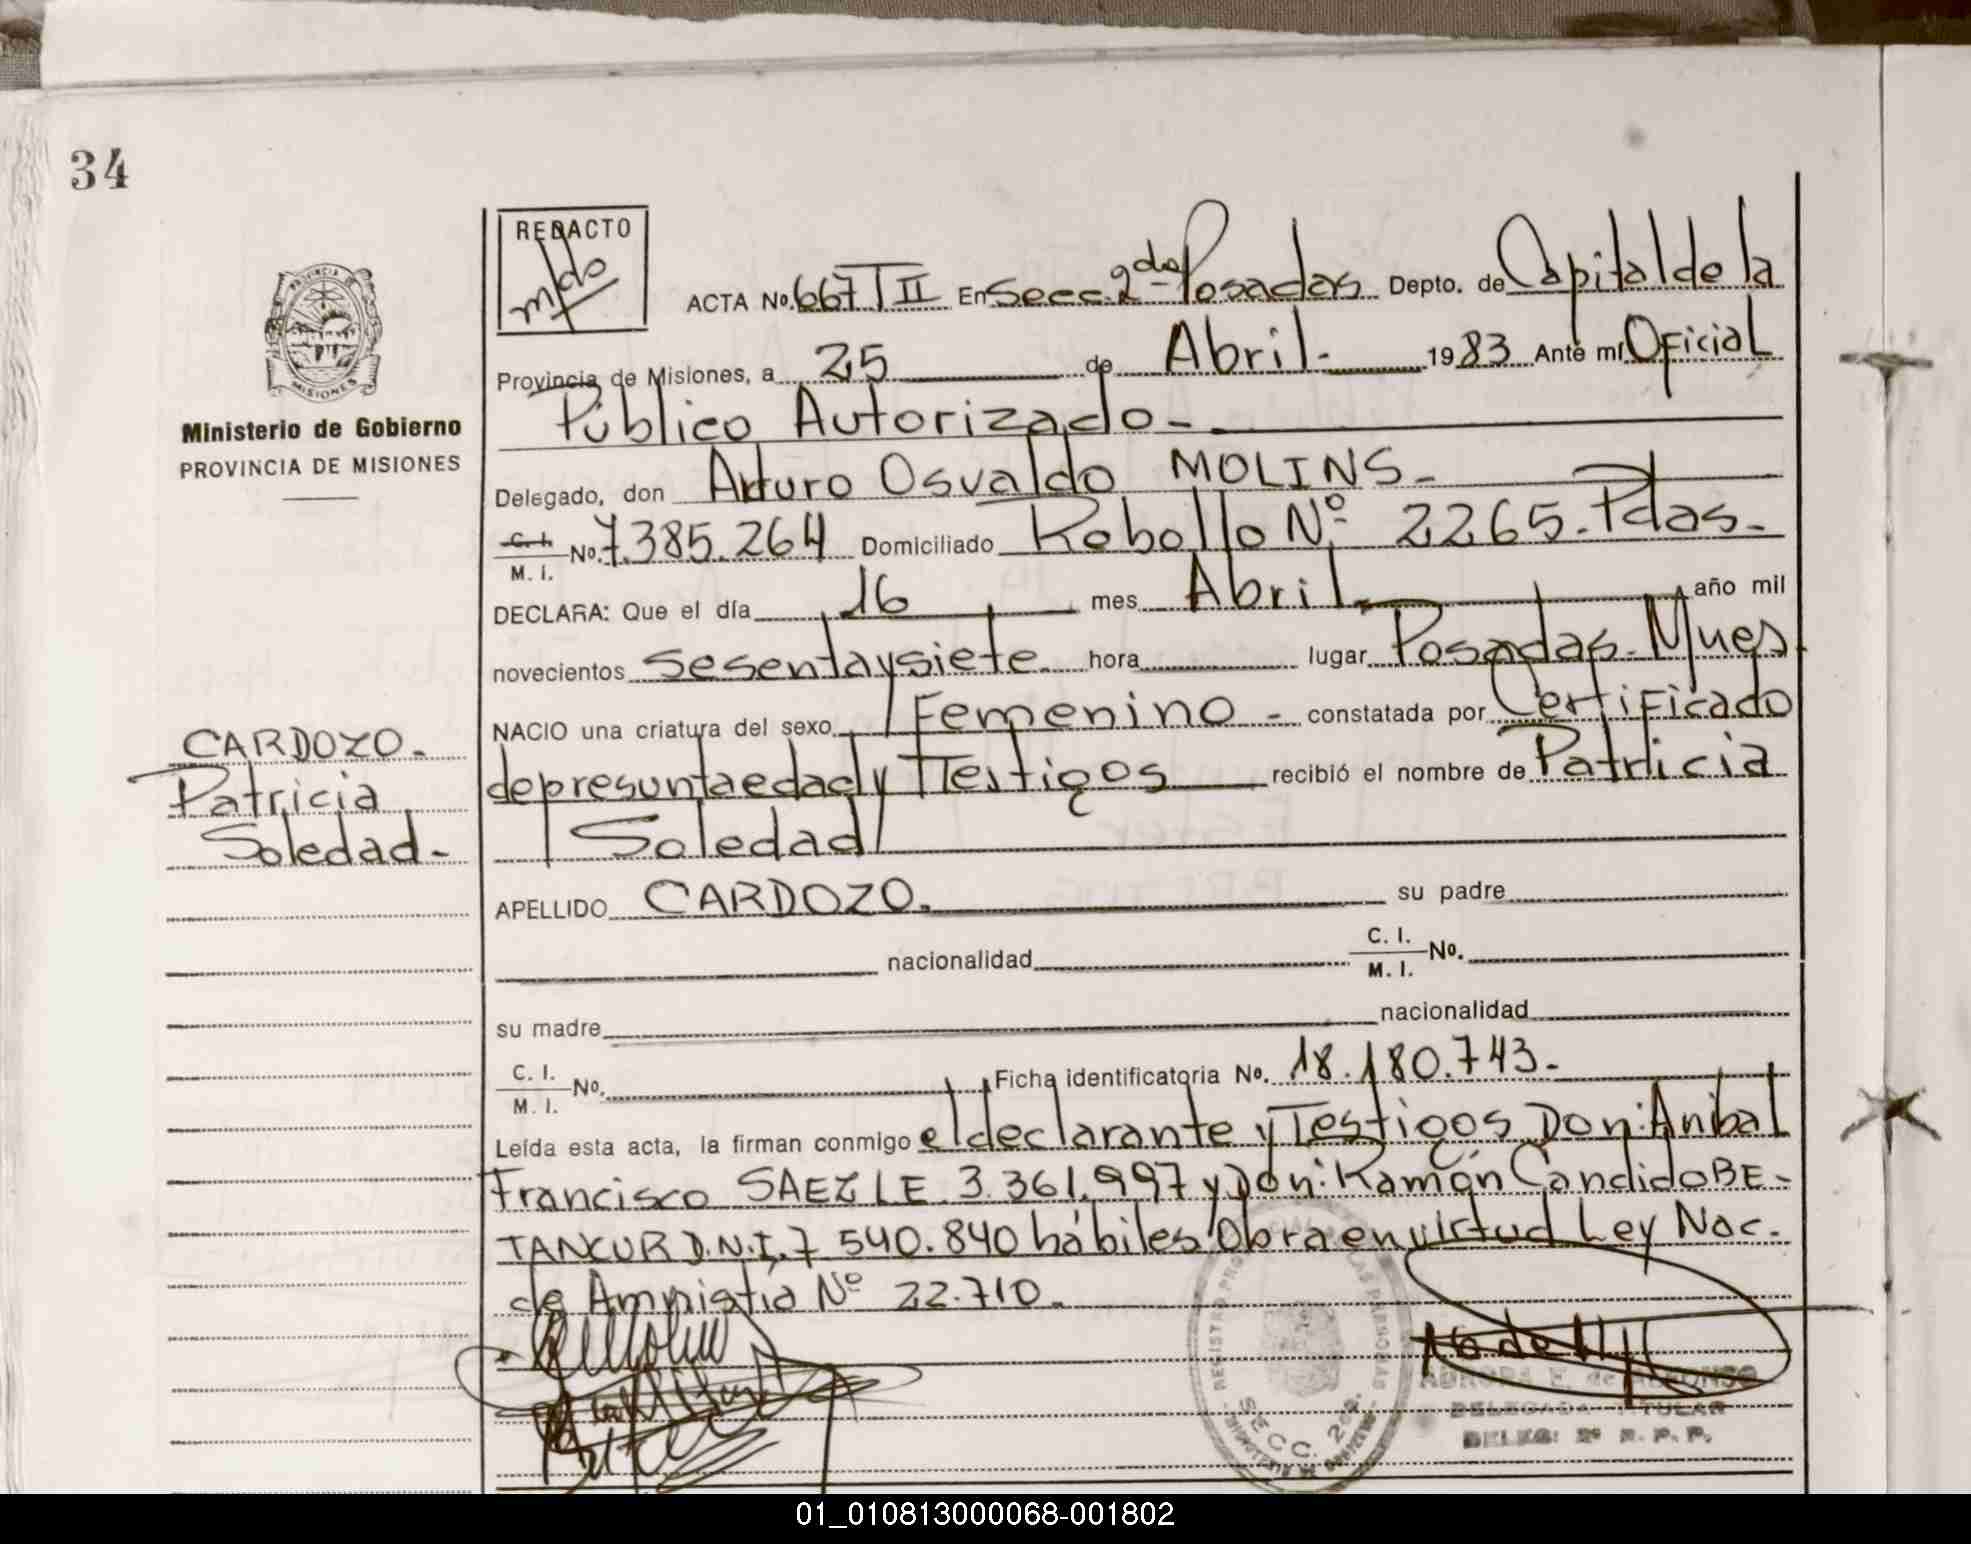 34
REDACTO
ACTA No. 667 T II En Secc. 2da Posadas Depto. de Capital de la
PROVINCIA
MISIONES
Provincia de Misiones, a 25 de Abril.- 1983 Ante mí Oficial
Público Autorizado-.
Ministerio de Gobierno
PROVINCIA DE MISIONES
Delegado, don Arturo Osvaldo MOLINS.-
C. I.
M. I. No. 7.385.264 Domiciliado Rebollo Nº 2265. Pdas.-
DECLARA: Que el día 16 mes Abril año mil
novecientos sesentaysiete hora lugar Posadas. Mnes.
NACIO una criatura del sexo Femenino - constatada por Certificado
CARDOZO.-
Patricia
Soledad.-
depresuntaedad y Testigos recibió el nombre de Patricia
Soledad
APELLIDO CARDOZO. su padre
nacionalidad C. I.
M. I. No.
su madre nacionalidad
C. I.
M. I. No. Ficha identificatoria No. 18.180.743.-
Leída esta acta, la firman conmigo el declarante y Testigos Don: Anibal
Francisco SAEZ LE. 3.361.997 y Don: Ramón Candido BE-
TANCUR D.N.I. 7.540.840 hábiles Obra en virtud Ley Nac.
de Amnistia Nº 22.710.
SECC. 2da.
AURORA E. de ALFONSO
DELEGADA TITULAR
DELEG: 2º R. P. P.
01_010813000068-001802